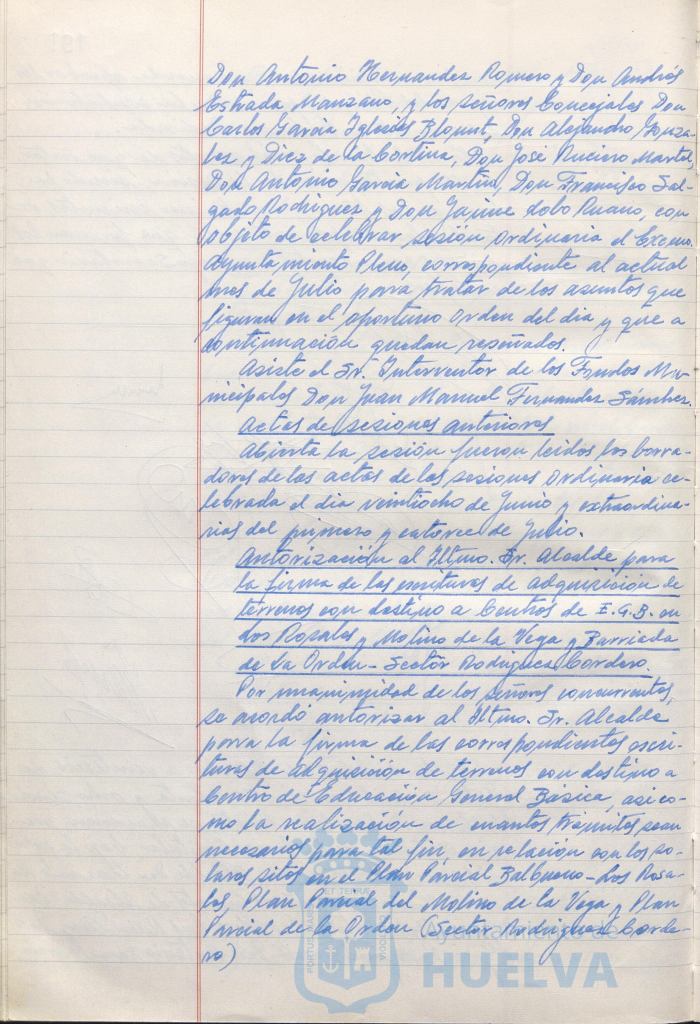 Don Antonio Hernandez Romero y Don Andrés
Estrada Manzano, y los señores Concejales Don
Carlos García Iglesias Blopunt, Don Alejandro Gonza-
lez y Diez de la Cortina, Don José Ruciero Martel,
Don Antonio García Martín, Don Francisco Sal-
gado Rodriguez y Don Jaime Lobo Ruano, con
objeto de celebrar sesión ordinaria el Excmo.
Ayuntamiento Pleno, correspondiente al actual
mes de Julio para tratar de los asuntos que
figuran en el oportuno orden del dia y que a
continuación quedan reseñados.
Asiste el Sr. Interventor de los Fondos Mu-
nicipales Don Juan Manuel Fernandez Sánchez.
Actas de sesiones anteriores
Abierta la sesión fueron leidos los borra-
dores de las actas de las sesiones ordinaria ce-
lebrada el dia veintiocho de Junio y extraordina-
rias del primero y catorce de Julio.
Autorización al Iltmo. Sr. Alcalde para
la firma de las escrituras de adquisición de
terrenos con destino a Centros de E.G.B. en
Los Rosales y Molino de la Vega y Barriada
de La Orden - Sector Rodriguez Cordero.
Por unanimidad de los señores concurrentes,
se acordó autorizar al Iltmo. Sr. Alcalde
para la firma de las correspondientes escri-
turas de adquisición de terrenos con destino a
Centro de Educación General Básica, asi co-
mo la realización de cuantos trámites sean
necesarios para tal fin, en relación con los so-
lares sitos en el Plan Parcial Balbueno - Los Rosa-
les, Plan Parcial del Molino de la Vega y Plan
Parcial de la Orden (Sector Rodriguez Corde-
ro)
Ayuntamiento de
HUELVA